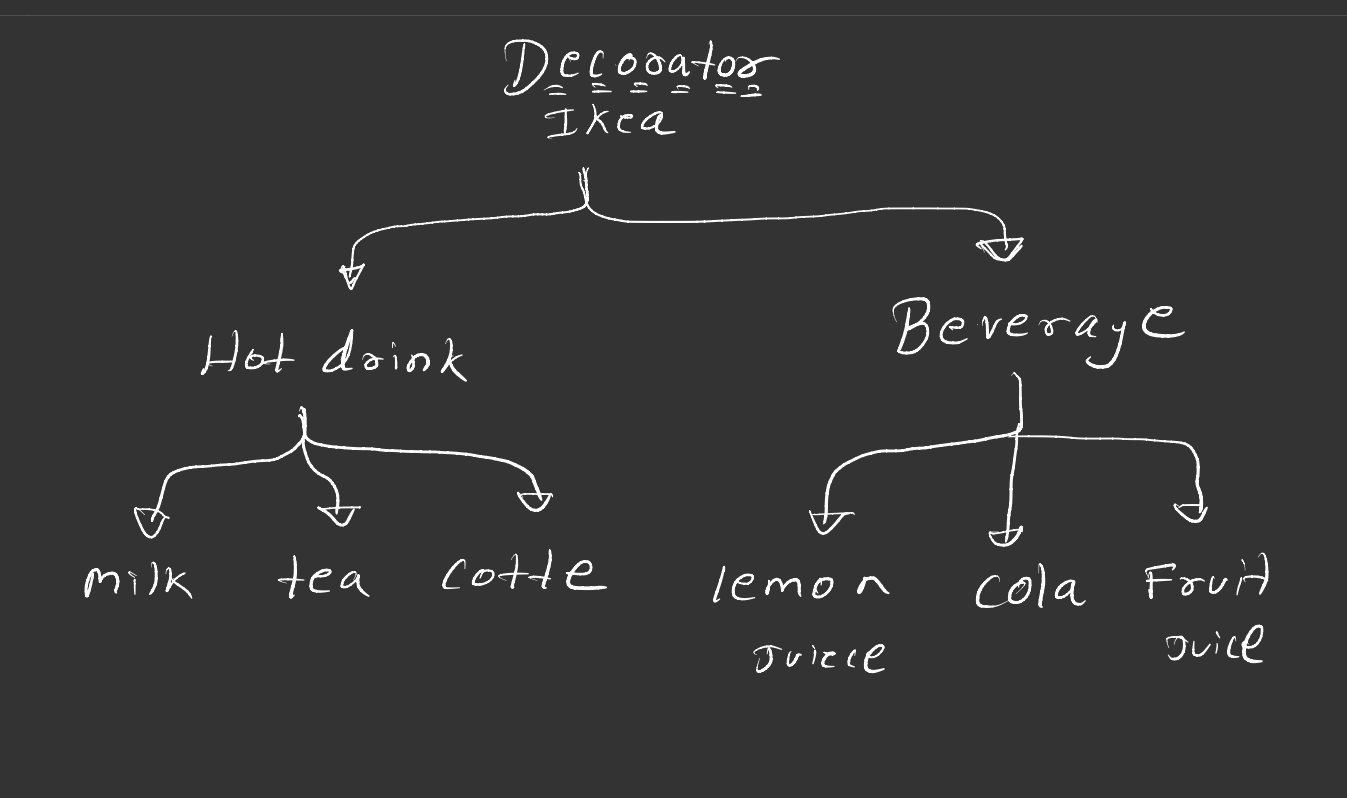 Decorator
Ikea
Hot drink
Beverage
milk
tea
cotte
lemon
Juicce
cola
Fruit
Juice